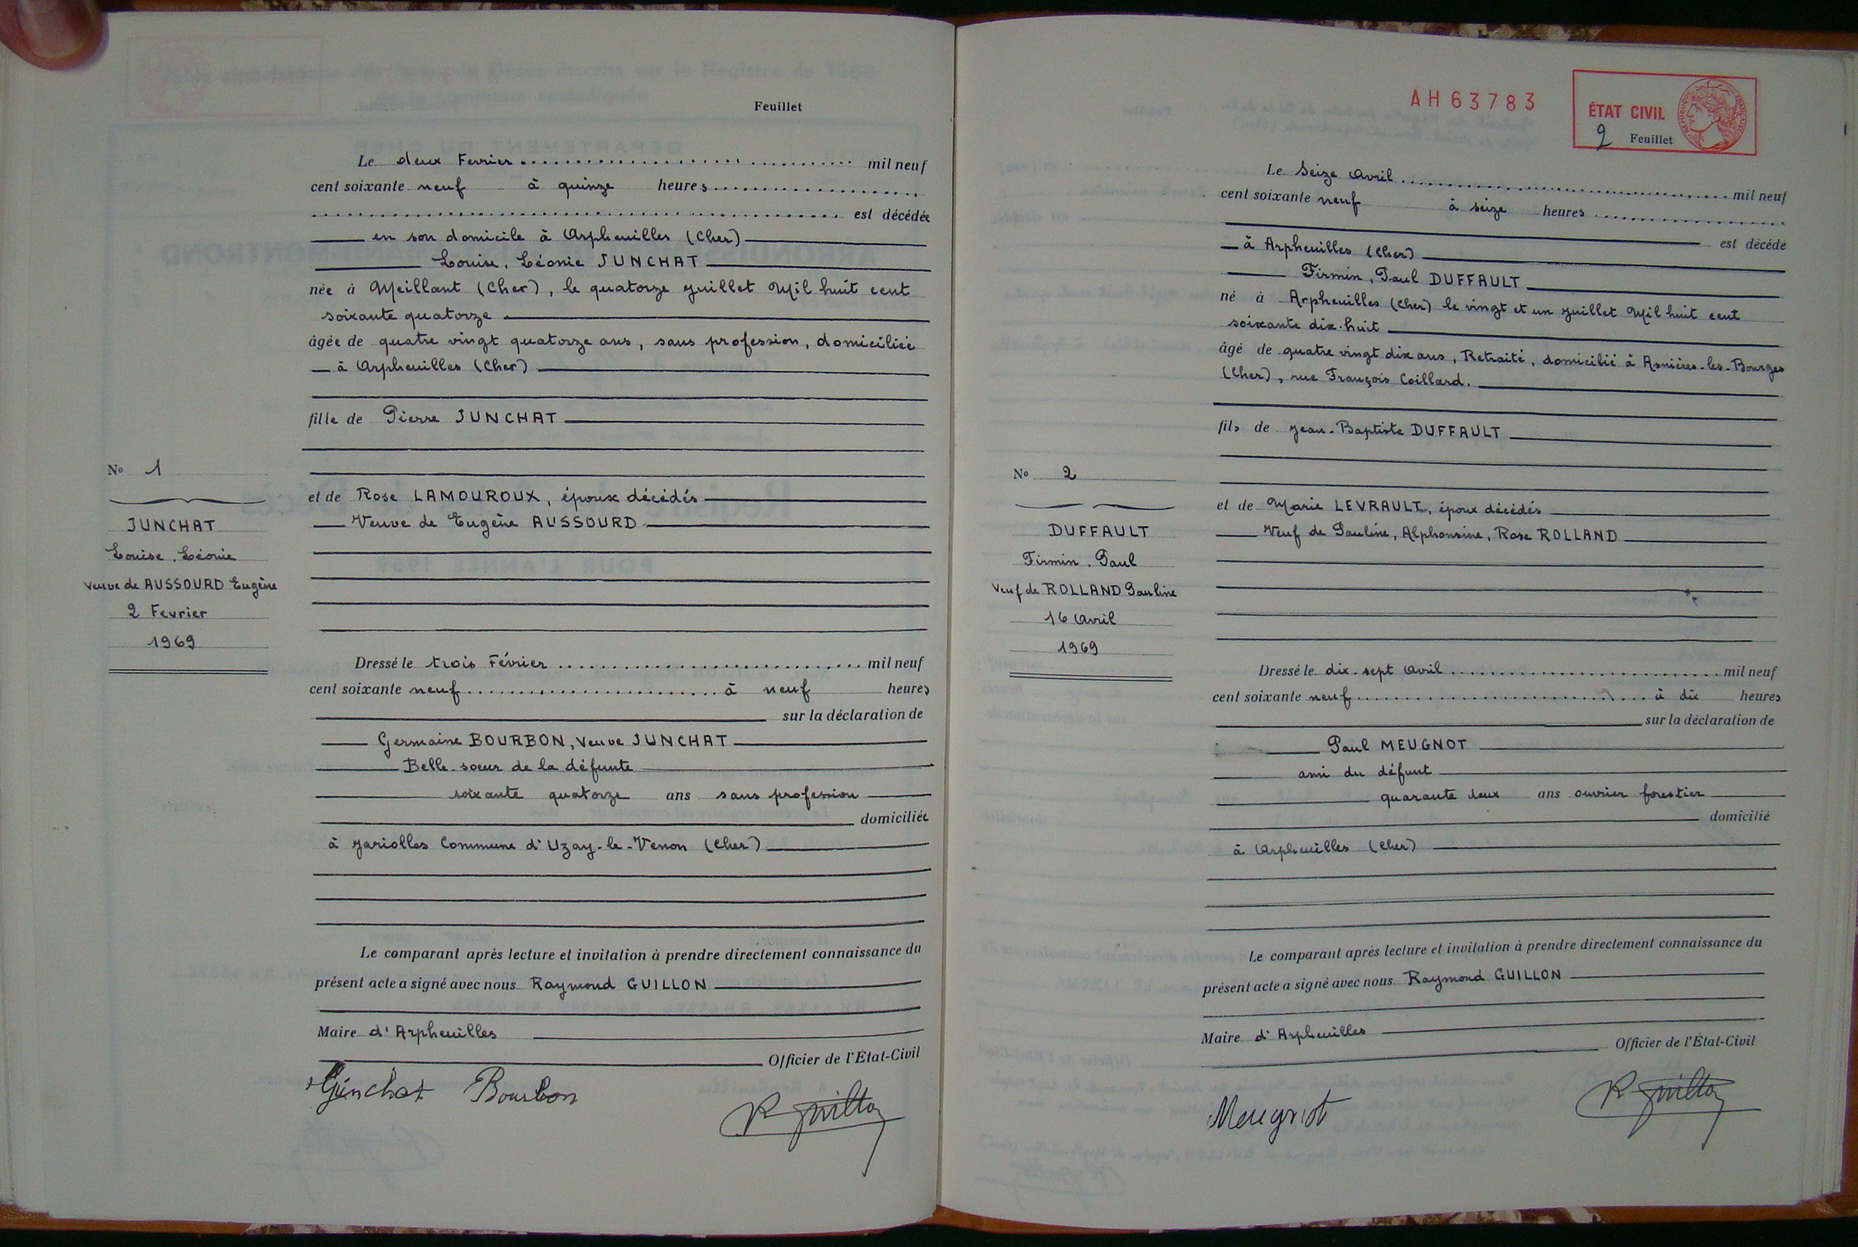 Feuillet
Le deux Fevrier mil neuf
cent soixante neuf à quinze heures
est décédée
en son domicile à Arpheuilles (Cher)
Louise, Léonie JUNCHAT
née à Meillant (Cher), le quatorze juillet Mil huit cent
soixante quatorze
âgée de quatre vingt quatorze ans, sans profession, domiciliée
à Arpheuilles (Cher)
fille de Pierre JUNCHAT
et de Rose LAMOUROUX, époux décédés
Veuve de Eugène AUSSOURD
No 1
JUNCHAT
Louise, Léonie
Veuve de AUSSOURD Eugène
2 Fevrier
1969
Dressé le trois Février mil neuf
cent soixante neuf à neuf heures
sur la déclaration de
Germaine BOURBON, Veuve JUNCHAT
Belle-sœur de la défunte
soixante quatorze ans sans profession
domiciliée
à Jariolles Commune d'Uzay-le-Venon (Cher)
Le comparant après lecture et invitation à prendre directement connaissance du
présent acte a signé avec nous Raymond GUILLON
Maire d'Arpheuilles
Officier de l'État-Civil
Junchat Bourbon
R Guillon
AH63783
ÉTAT CIVIL
2 Feuillet
Le Seize Avril mil neuf
cent soixante neuf à seize heures
est décédé
à Arpheuilles (Cher)
Firmin, Paul DUFFAULT
né à Arpheuilles (Cher) le vingt et un juillet Mil huit cent
soixante dix-huit
âgé de quatre vingt dix ans, Retraité, domicilié à Asnières-les-Bourges
(Cher), rue François Coillard.
fils de Jean-Baptiste DUFFAULT
et de Marie LEVRAULT, époux décédés
Veuf de Pauline, Alphonsine, Rose ROLLAND
No 2
DUFFAULT
Firmin. Paul
Veuf de ROLLAND Pauline
16 Avril
1969
Dressé le dix-sept Avril mil neuf
cent soixante neuf à dix heures
sur la déclaration de
Paul MEUGNOT
ami du défunt
quarante deux ans ouvrier forestier
domicilié
à Arpheuilles (Cher)
Le comparant après lecture et invitation à prendre directement connaissance du
présent acte a signé avec nous Raymond GUILLON
Maire d'Arpheuilles
Officier de l'État-Civil
Meugnot
R Guillon